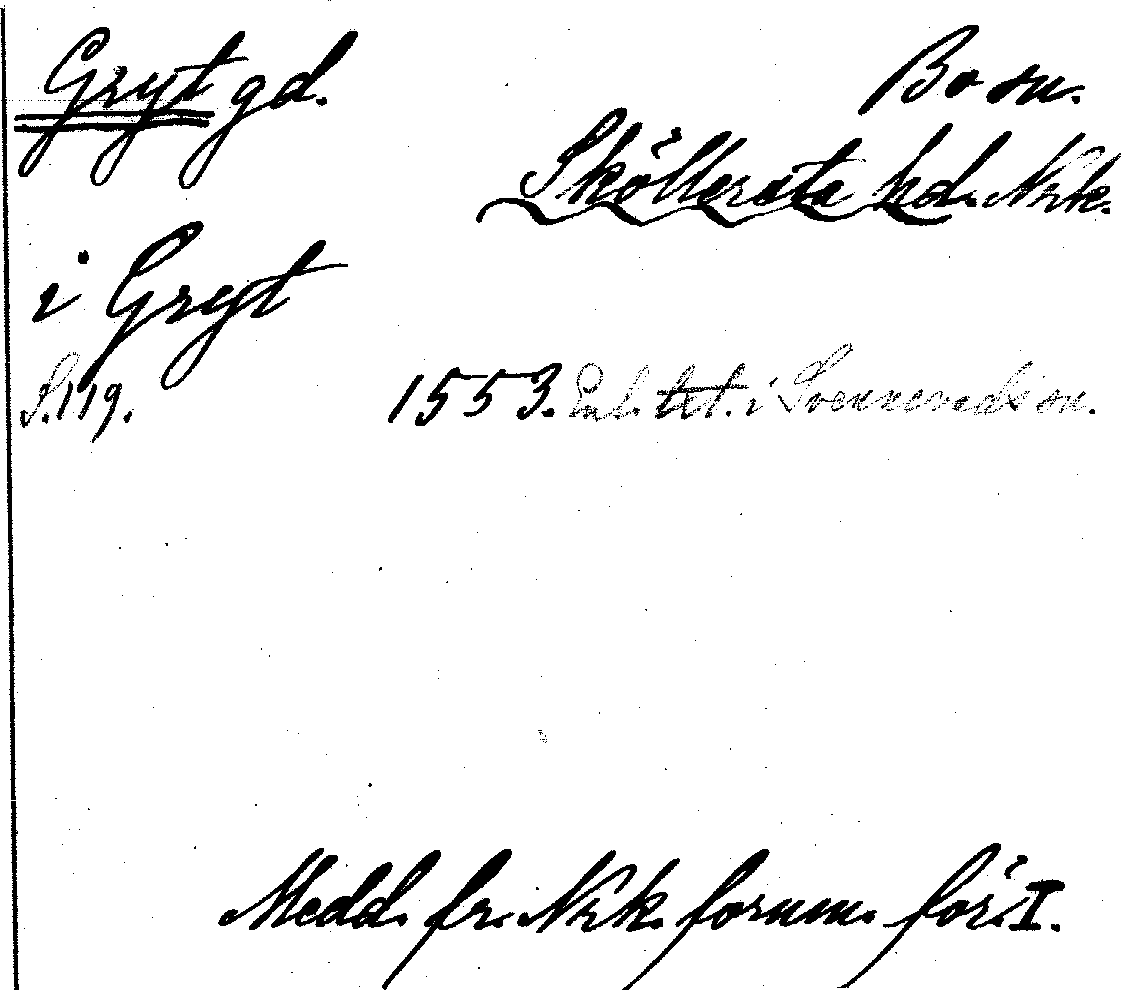 Gryt gd.
Bo sn.
Sköllersta hd. Nrk.
i Gryt
S. 119. 1553. Enl. txt. i Svennevads sn.
Medd. fr. Nrk. fornm. för. I.